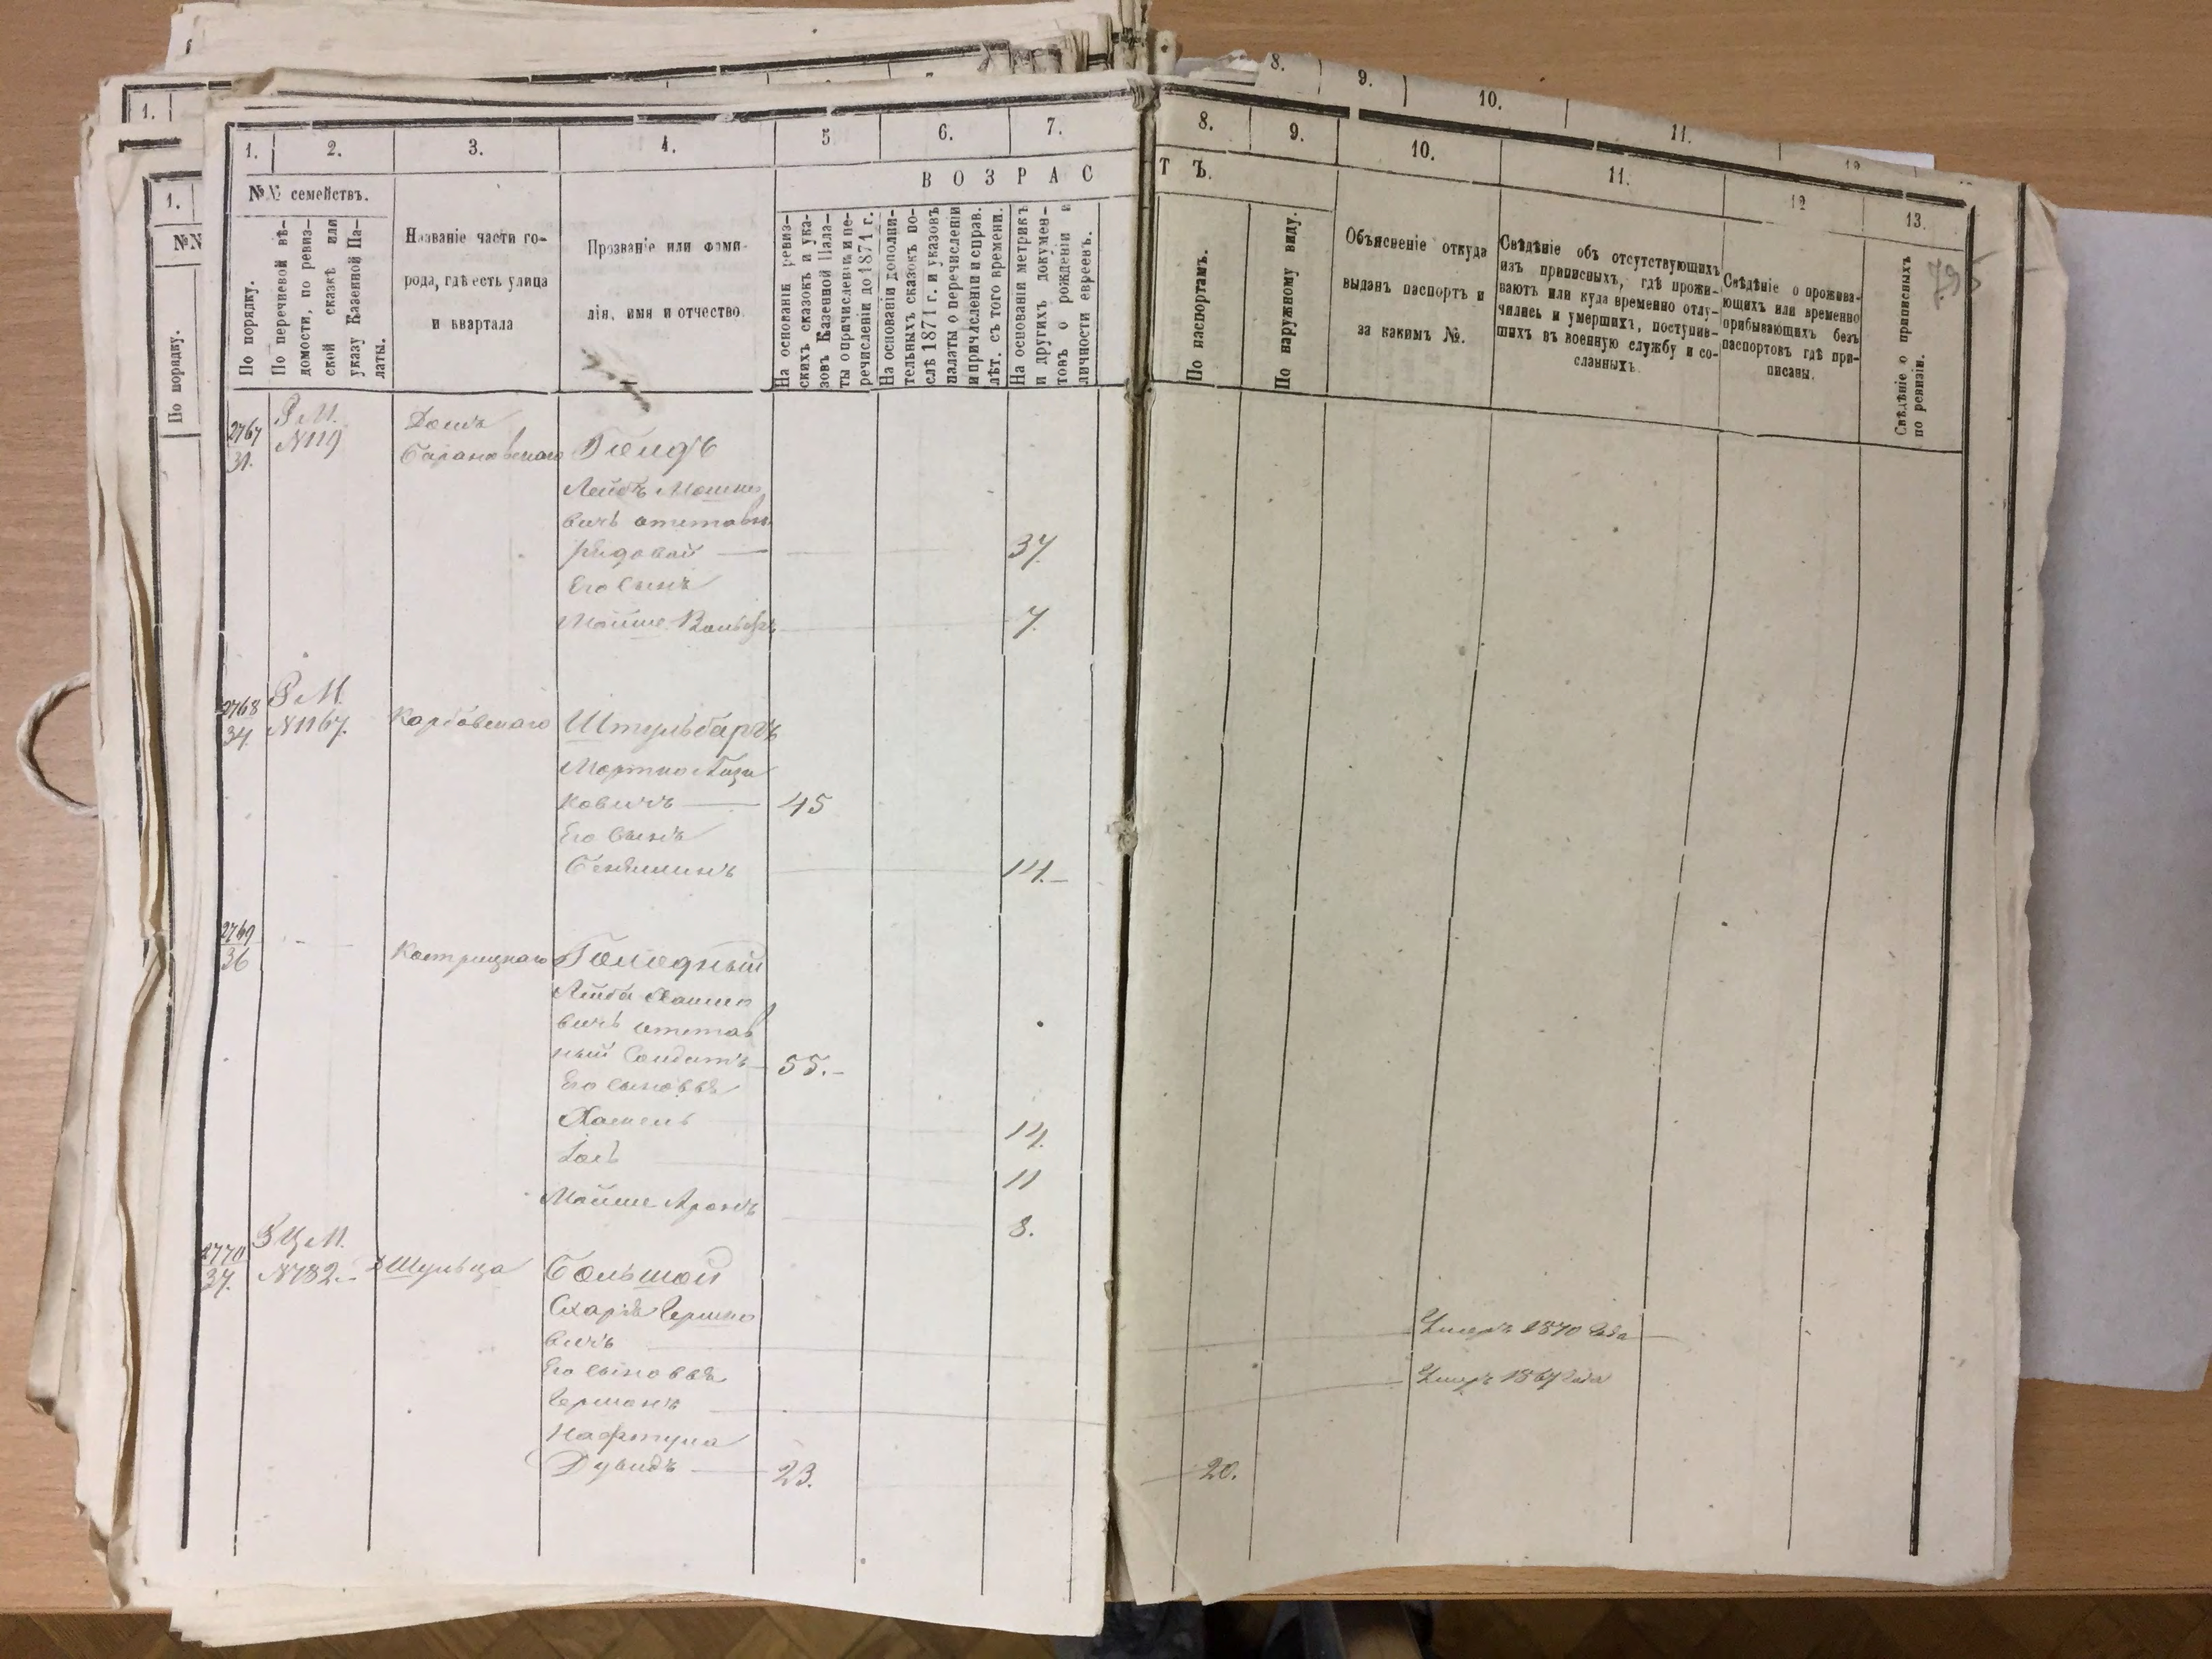 8.
9.
10.
11.
1.
1.
№№
По порядку.
1.
2.
3.
4.
5
6.
7.
8.
9.
10.
11.
12
13.
№№ семействъ.
В О З Р А С
Т Ъ.
По порядку.
По перечневой вѣ-
домости, по ревиз-
ской сказкѣ или
указу Казенной Па-
латы.
Названіе части го-
рода, гдѣ есть улица
и квартала
Прозваніе или фами-
лія, имя и отчество.
На основаніи ревиз-
скихъ сказокъ и ука-
зовъ Казенной Пала-
ты о причисленіи и пе-
речисленіи до 1871 г.
На основаніи дополни-
тельныхъ сказокъ по-
слѣ 1871 г. и указовъ
палаты о перечисленіи
и причисленіи и справ.
лѣт. съ того времени.
На основаніи метрикъ
и другихъ докумен-
товъ о рожденіи и
личности евреевъ.
По паспортамъ.
По наружному виду.
Объясненіе откуда
выданъ паспортъ и
за какимъ №.
Свѣдѣніе объ отсутствующихъ
изъ приписныхъ, гдѣ прожи-
ваютъ или куда временно отлу-
чились и умершихъ, поступив-
шихъ въ военную службу и со-
сланныхъ.
Свѣдѣніе о прожива-
ющихъ или временно
прибывающихъ безъ
паспортовъ гдѣ при-
писаны.
Свѣдѣніе о приписныхъ
по ревизіи.
2767
31.
Р М.
№119
Домъ
Барановскаго
Гольдъ
Лейбъ Мошко
вичъ отставн.
рядовой — 37.
Его сынъ
Мойше Вольфъ 7.
2768
34.
Р М.
№1167.
Карбовскаго
Штульбаргъ
Мортко Айзи
ковичъ — 45
Его сынъ
Беньяминъ 14.–
2769
36
Кострицкаго
Голодный
Лейба Хаимо
вичъ отстав
ный Солдатъ — 55.–
Его сыновья
Хаскель 14.
Іось 11
Мойше Аронъ 8.
2770
37.
Р Ц М.
№782.–
Д Шульца
Большой
Схарія Гершко
вичъ Умеръ 1870 года
Его сыновья
Гершонъ Умеръ 1867 года
Нафтула
Дувидъ — 23. 20.